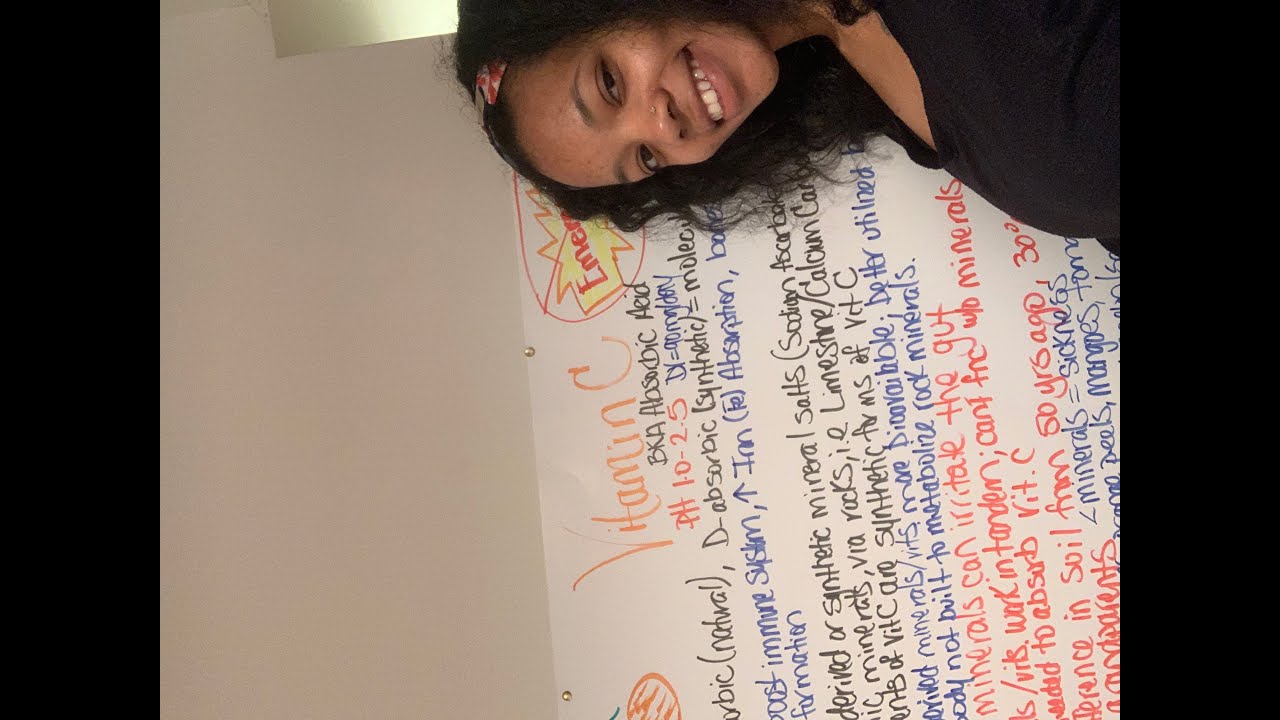 Vitamin C
BKA Absorbic Acid
PH 1.0-2.5 DI=90mg/day
orbic (natural), D-absorbic (synthetic) = molecu
oost immune system, ↑ Iron (Fe) Absorption, bone
formation
derived or synthetic mineral salts (sodium Ascorbat
ic minerals via rocks, i.e Limestine/Calcium Car
ents of Vit C are synthetic forms of Vit C
erived minerals/vits more bioavailable; better utilized b
body not built to metabolize rock minerals.
minerals can irritate the gut
ls/vits. work in tandem; cant fnc w/o minerals
needed to absorb Vit. C
ference in soil from 50 yrs ago, 30%
grandparents < minerals = sickness
orange peels, mangoes, toma
Emer